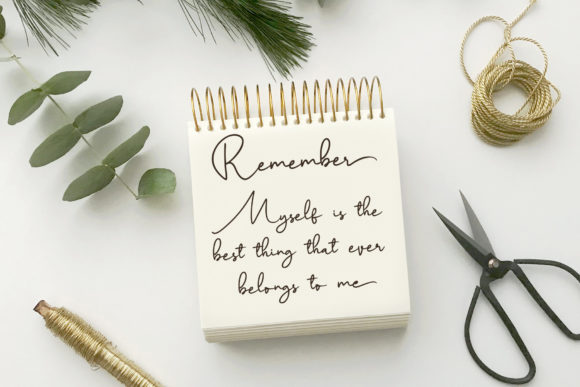 Remember
Myself is the
best thing that ever
belongs to me